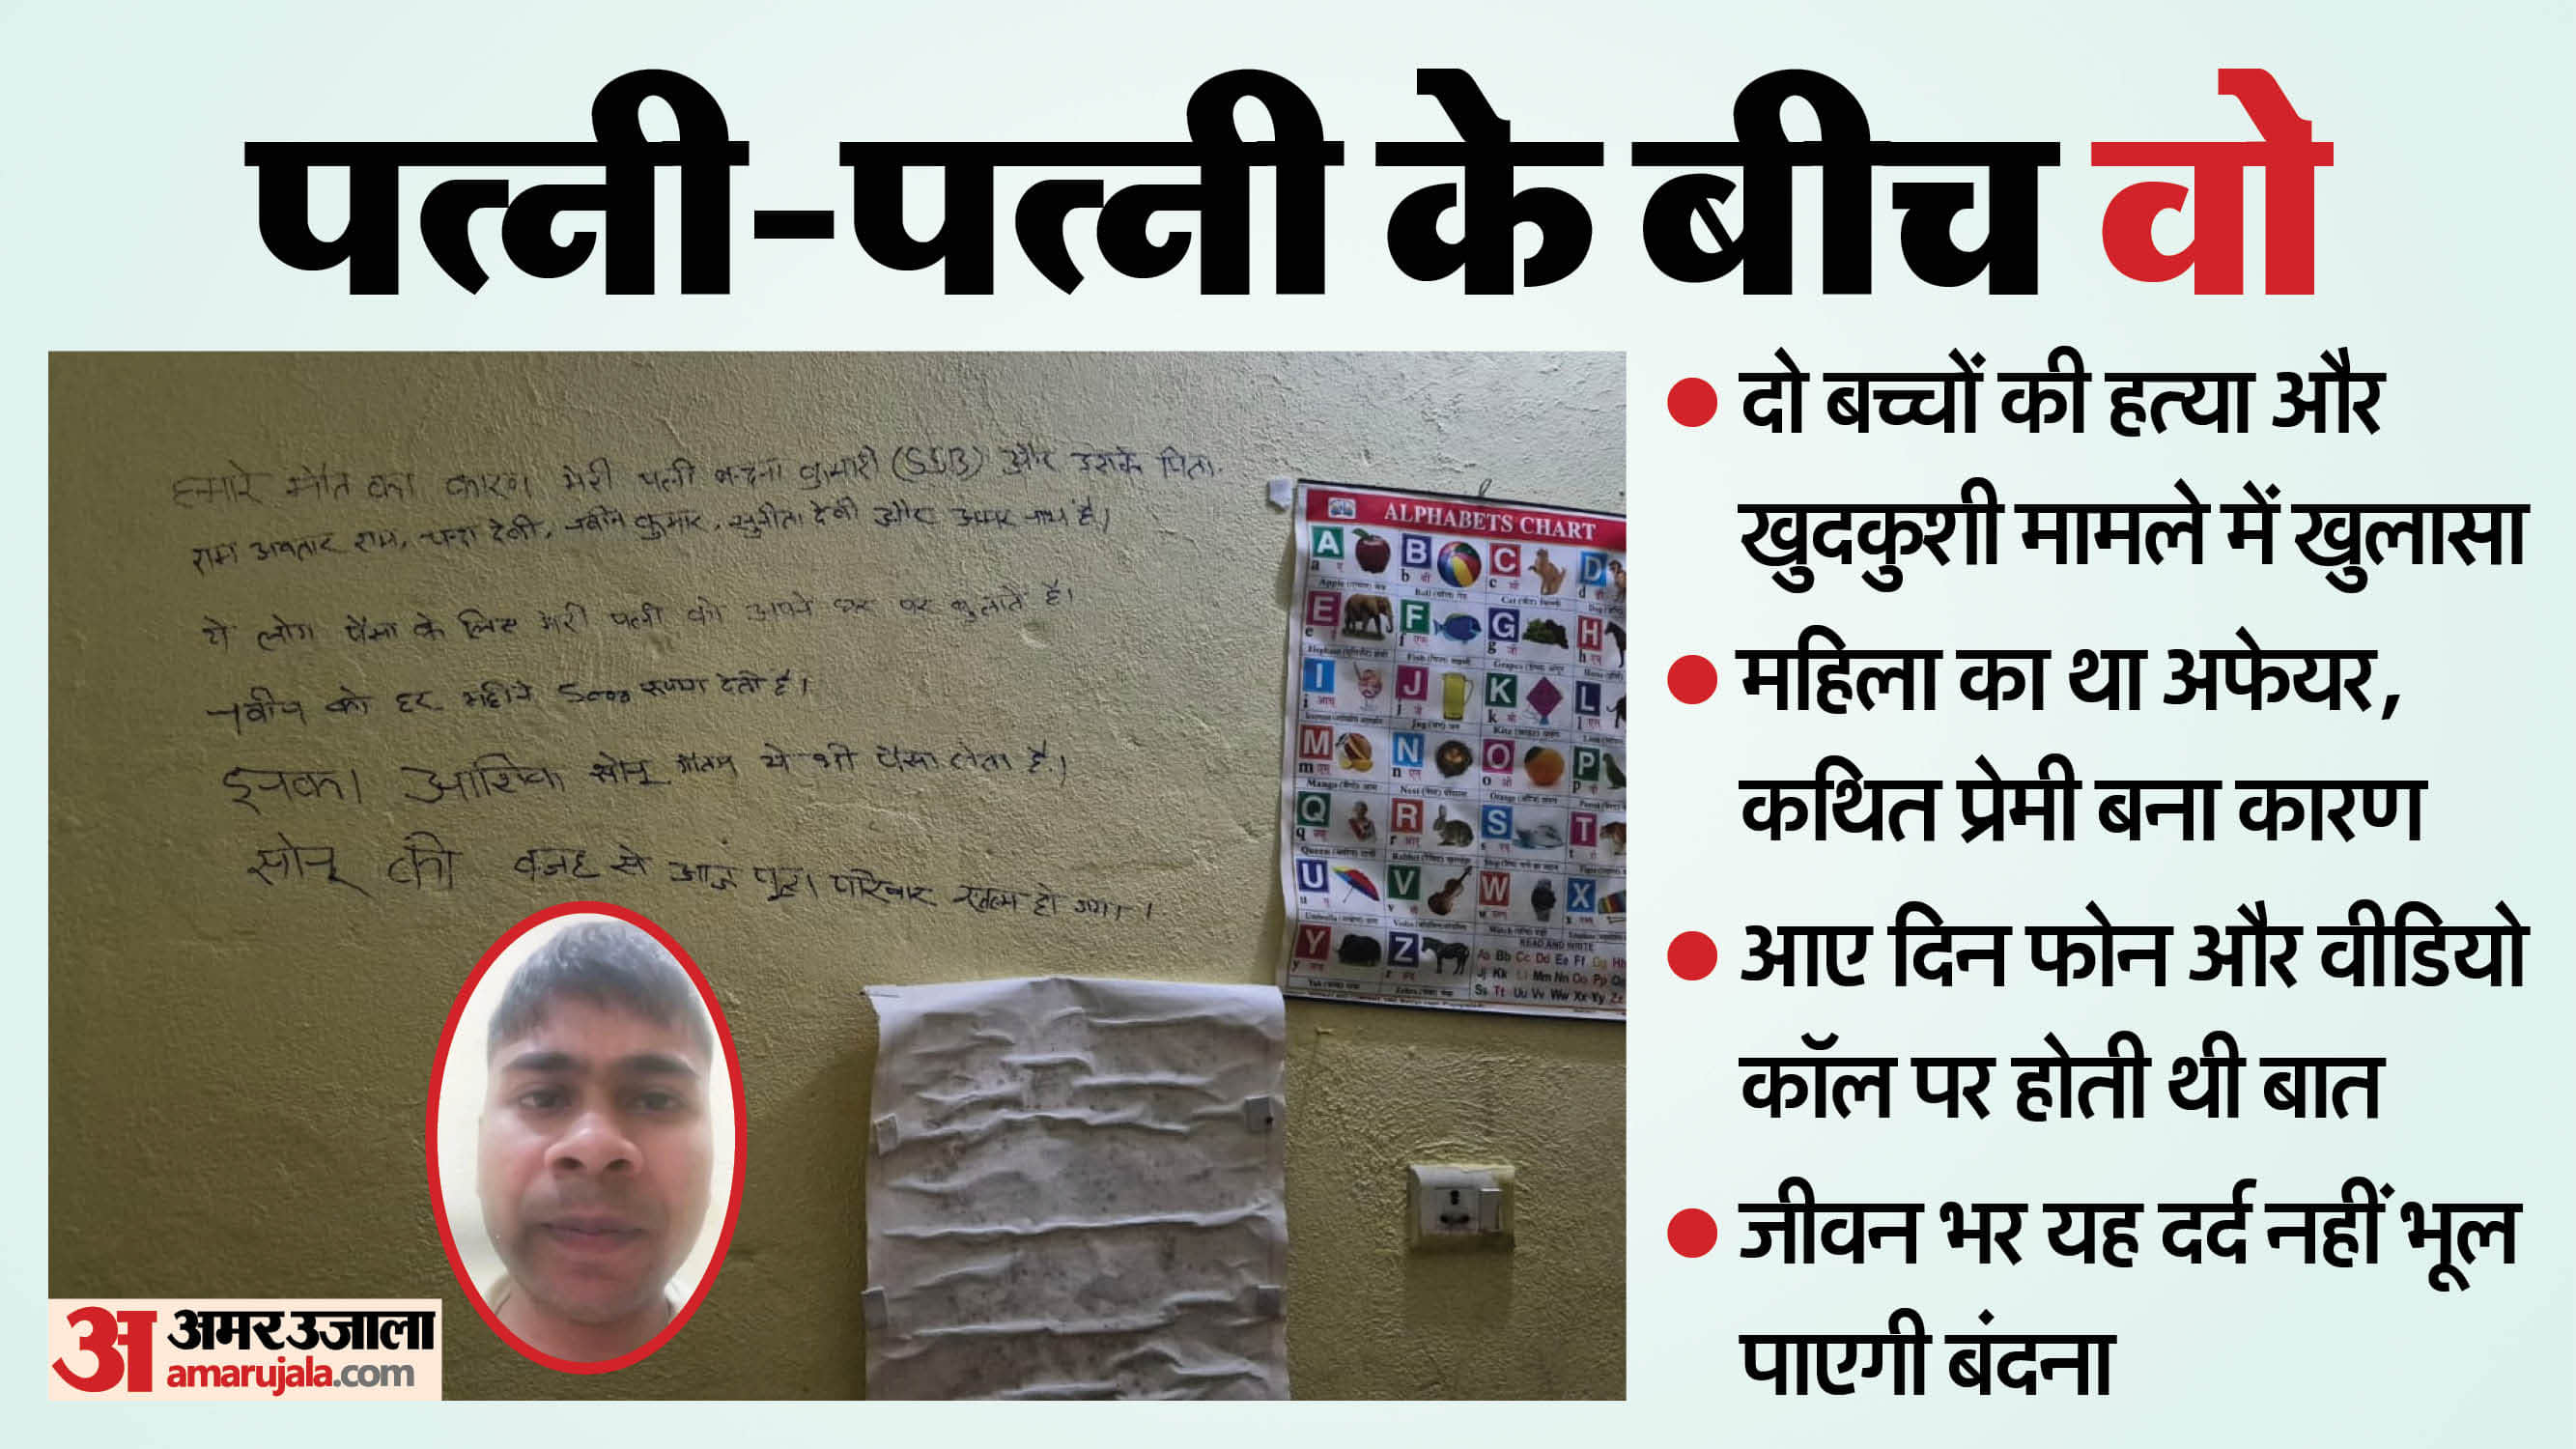 पत्नी-पत्नी के बीच वो
दो बच्चों की हत्या और
खुदकुशी मामले में खुलासा
महिला का था अफेयर,
कथित प्रेमी बना कारण
आए दिन फोन और वीडियो
कॉल पर होती थी बात
जीवन भर यह दर्द नहीं भूल
पाएगी बंदना
हमारे मौत का कारण मेरी पत्नी बन्दना कुमारी (SSB) और उसके पिता
राम अवतार राम, चन्दा देवी, नवीन कुमार, सुनीता देवी और अमर नाथ है।
ये लोग पैसा के लिए मेरी पत्नी को अपने घर पर बुलाते है।
नवीन को हर महीने 5000 रूपया देती है।
इनका आशिक सोनू गौतम ये भी पैसा लेता है।
सोनू की वजह से आज पूरा परिवार खत्म हो गया।
ALPHABETS CHART
A B C D
a b c d
Apple Ball Cat
E F G H
e f g h
Elephant Fish Grapes
I J K L
i j k l
Jug Kite
M N O P
m n o p
Mango Nest Orange
Q R S T
q r s t
Queen Rabbit Ship
U V W X
u v w x
Umbrella Violin Watch
Y Z READ AND WRITE
y z Aa Bb Cc Dd Ee Ff Gg Hh
Jj Kk Ll Mm Nn Oo Pp
Yak Zebra Ss Tt Uu Vv Ww Xx Yy Zz
अ अमर उजाला
amarujala.com